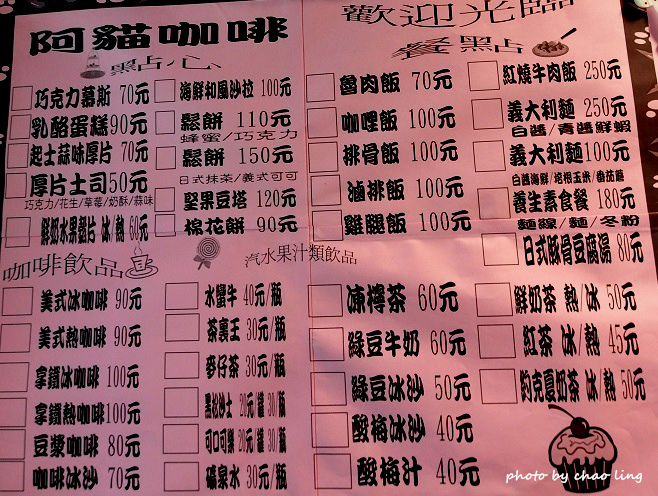 阿貓咖啡
歡迎光臨
點心
巧克力慕斯 70元
乳酪蛋糕90元
起士蒜味厚片 70元
厚片土司50元
巧克力/花生/草莓/奶酥/蒜味
鮮奶水果麥片 冰/熱 60元
海鮮和風沙拉 100元
鬆餅 110元
蜂蜜/巧克力
鬆餅 150元
日式抹茶/義式可可
堅果豆塔 120元
棉花餅 90元
餐點
魯肉飯 70元
咖哩飯 100元
排骨飯 100元
滷排飯 100元
雞腿飯 100元
紅燒牛肉飯 250元
義大利麵 250元
白醬/青醬鮮蝦
義大利麵100元
白醬海鮮/培根玉米/番茄醬
養生素食餐 180元
麵線/麵/冬粉
日式豚骨豆腐湯 80元
咖啡飲品
美式冰咖啡 90元
美式熱咖啡 90元
拿鐵冰咖啡 100元
拿鐵熱咖啡100元
豆漿咖啡 80元
咖啡冰沙 70元
汽水果汁類飲品
水蠻牛 40元/瓶
茶裏王 30元/瓶
麥仔茶 30元/瓶
黑松沙士 20元/罐 30/瓶
可口可樂 20元/罐 30/瓶
礦泉水 30元/瓶
凍檸茶 60元
綠豆牛奶 60元
綠豆冰沙 50元
酸梅冰沙 40元
酸梅汁 40元
鮮奶茶 熱/冰 50元
紅茶 冰/熱 45元
約克夏奶茶 冰/熱 50元
photo by chao ling